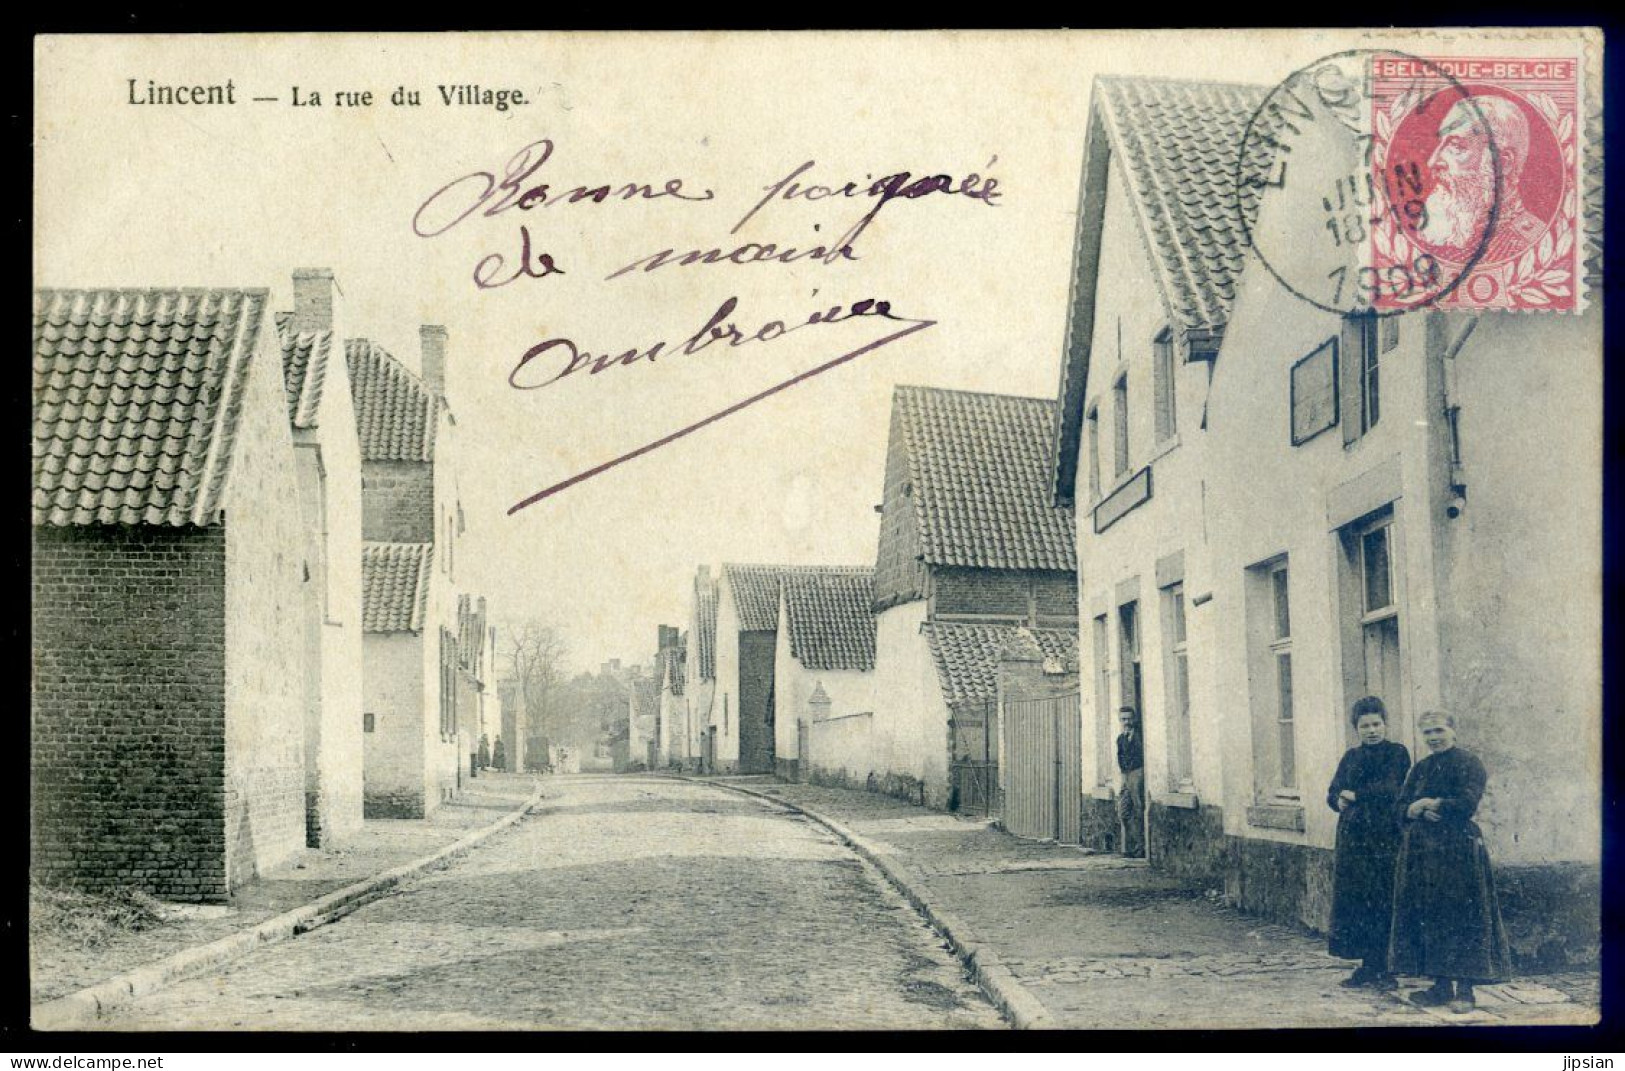 Lincent — La rue du Village.
BELGIQUE-BELGIE
LINCENT
7
JUIN
18-19
1909
10
Bonne poignée
de main
Ambroisine
delcampe.net
jipsian